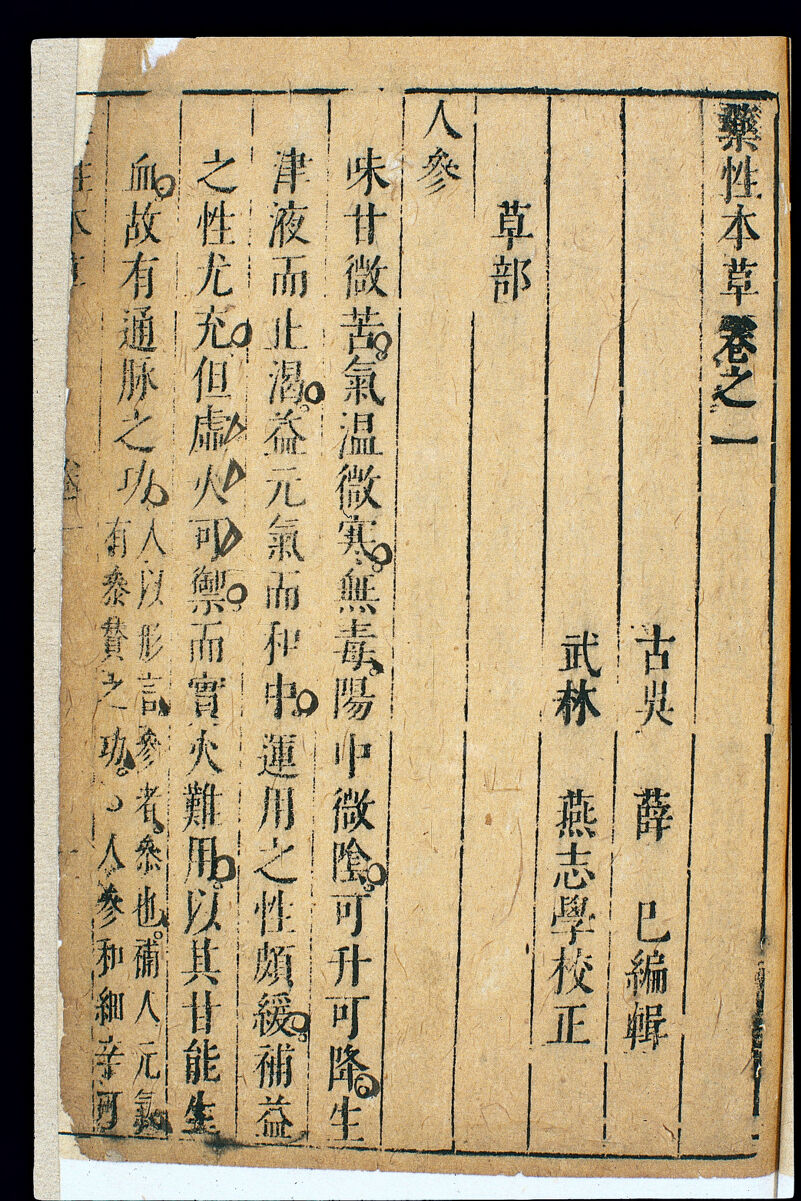 藥性本草卷之一
古吳 薛 己編輯
武林 燕志學校正
草部
人參
味甘微苦。氣温微寒。無毒。陽中微陰。可升可降。生
津液而止渴。益元氣而和中。運用之性頗緩。補益
之性尤充。但虛火可禦。而實火難用。以其甘能生
血。故有通脉之功。
人以形言。參者。叅也。補人元氣
有叅贊之功。○人參和細辛可
性本草